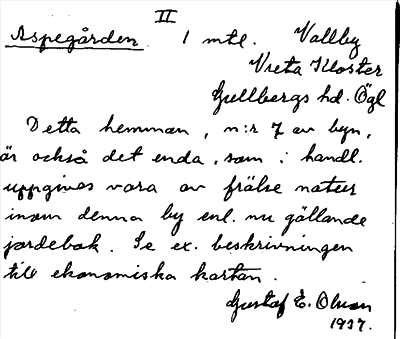 II
Aspegården. 1 mtl. Vallby
Vreta Kloster
Gullbergs hd. Ögl
Detta hemman, n:r 7 av byn,
är också det enda, som i handl.
uppgives vara av frälse natur
inom denna by enl. nu gällande
jordebok. Se ex. beskrivningen
till ekonomiska kartan.
Gustaf E. Olson
1937.